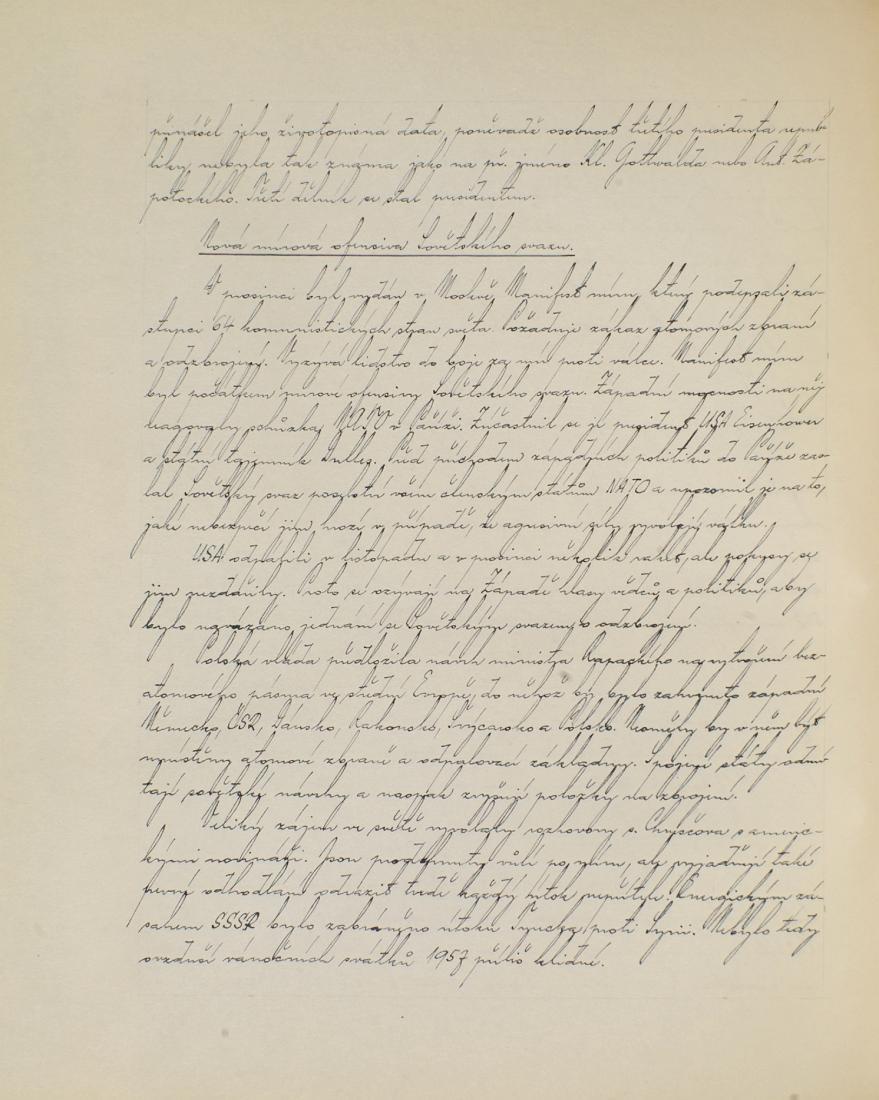 přinášel jeho životopisná data, poněvadž osobnost třetího presidenta repub-
liky nebyla tak známa jako na př. jméno Kl. Gottwalda nebo Ant. Zá-
potockého. Třetí dělník se stal presidentem.
Nová mírová ofensiva Sovětského svazu.
V prosinci byl vydán v Moskvě Manifest míru, který podepsali zá-
stupci 64 komunistických stran světa. Požaduje zákaz atomových zbraní
a odzbrojení. Vyzývá lidstvo do boje za mír proti válce. Manifest míru
byl počátkem mírové ofensivy Sovětského svazu. Západní mocnosti na něj
reagovaly schůzkou NATO v Paříži. Zúčastnil se jí president USA Eisenhower
a státní tajemník Dulles. Před příchodem západních politiků do Paříže zas-
lal Sovětský svaz poselství všem členským státům NATO a upozornil je na to,
jaké nebezpečí jim hrozí v případě, že agresivní síly vyvolají válku.
USA odpálili v listopadu a v prosinci několik raket, ale pokusy se
jim nezdařily. Proto se ozývají na Západě hlasy vědců a politiků, aby
bylo navázáno jednání se Sovětským svazem o odzbrojení.
Polská vláda předložila návrh ministra Rapackého na vytvoření bez-
atomového pásma ve střední Evropě, do něhož by bylo zahrnuto západní
Německo, ČSR, Dánsko, Rakousko, Švýcarsko a Polsko. Neměly by v něm být
umístěny atomové zbraně a odpalovací základny. Spojené státy odmí-
tají sovětské návrhy a naopak zvyšují položky na zbrojení.
Veliký zájem ve světě vyvolaly rozhovory s. Chruščova s americ-
kými novináři. Jsou prodchnuty vůlí po míru, ale vyjadřují také
pevné odhodlání odrazit tvrdě každý útok nepřítele. Energickým zá-
sahem SSSR bylo zabráněno útoku Turecka proti Syrii. Nebylo tedy
ovzduší vánočních svátků 1957 příliš klidné.